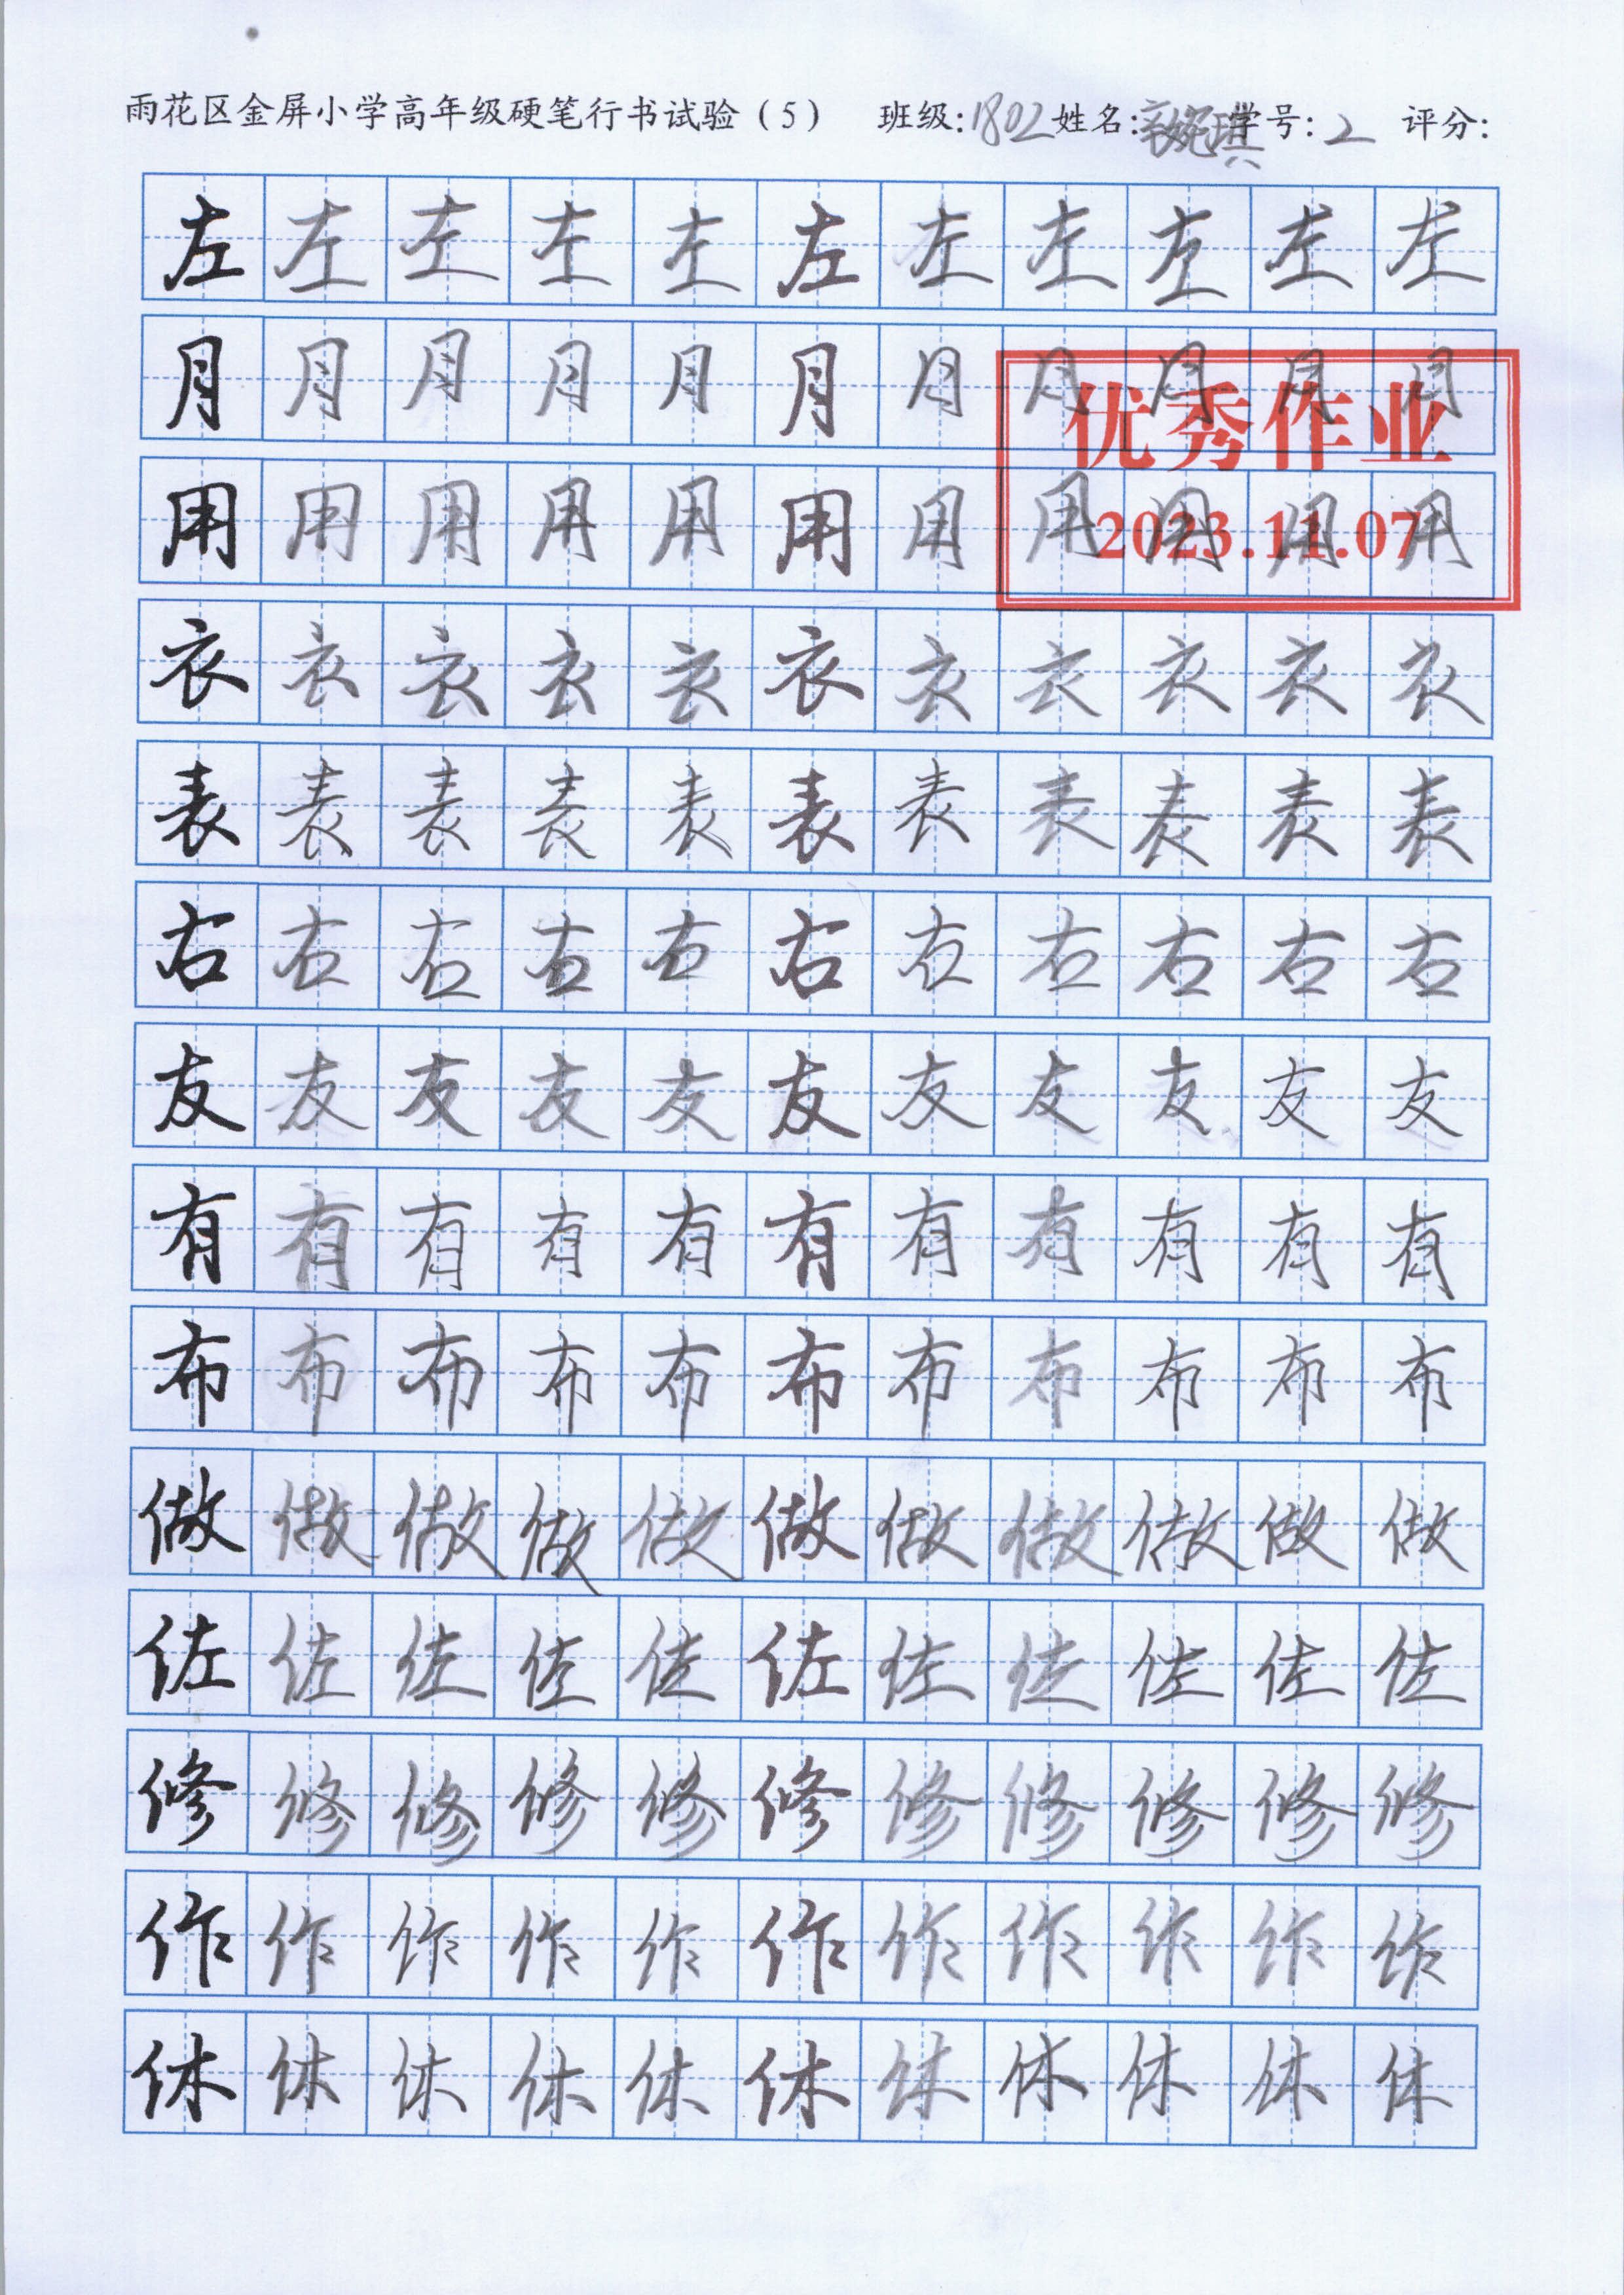 雨花区金屏小学高年级硬笔行书试验（5） 班级:1802 姓名: 学号:2 评分:
左左左左左左左左左左左
月月月月月月月月月月月
优秀作业
用用用用用用用用用用用
2023.11.07
衣衣衣衣衣衣衣衣衣衣衣
表表表表表表表表表表表
右右右右右右右右右右右
友友友友友友友友友友友
有有有有有有有有有有有
布布布布布布布布布布布
做做做做做做做做做做做
佐佐佐佐佐佐佐佐佐佐佐
修修修修修修修修修修修
作作作作作作作作作作作
休休休休休休休休休休休